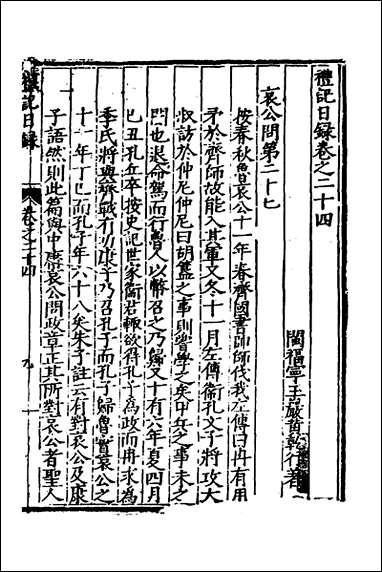 禮記日錄卷之二十四
閩福寧王嵒黃乾行著
哀公問第二十七
按春秋魯哀公十一年春齊國書帥師伐我左傳曰冉有用
矛於齊師故能入其軍文冬十一月左傳衛孔文子將攻大
叔訪於仲尼仲尼曰胡簋之事則嘗學之矣甲兵之事未之
聞也退命駕而行魯人以幣召之乃歸又十有六年夏四月
己丑孔丘卒按史記世家衛君輒欲得孔子為政而冉求為
季氏將與齊戰有功康子乃召孔子而孔子歸魯實哀公之
十一年丁巳而孔子年六十八矣朱子註云有對哀公及康
子語然則此篇與中庸哀公問政章正其所對哀公者聖人
禮記日錄
卷之二十四
九